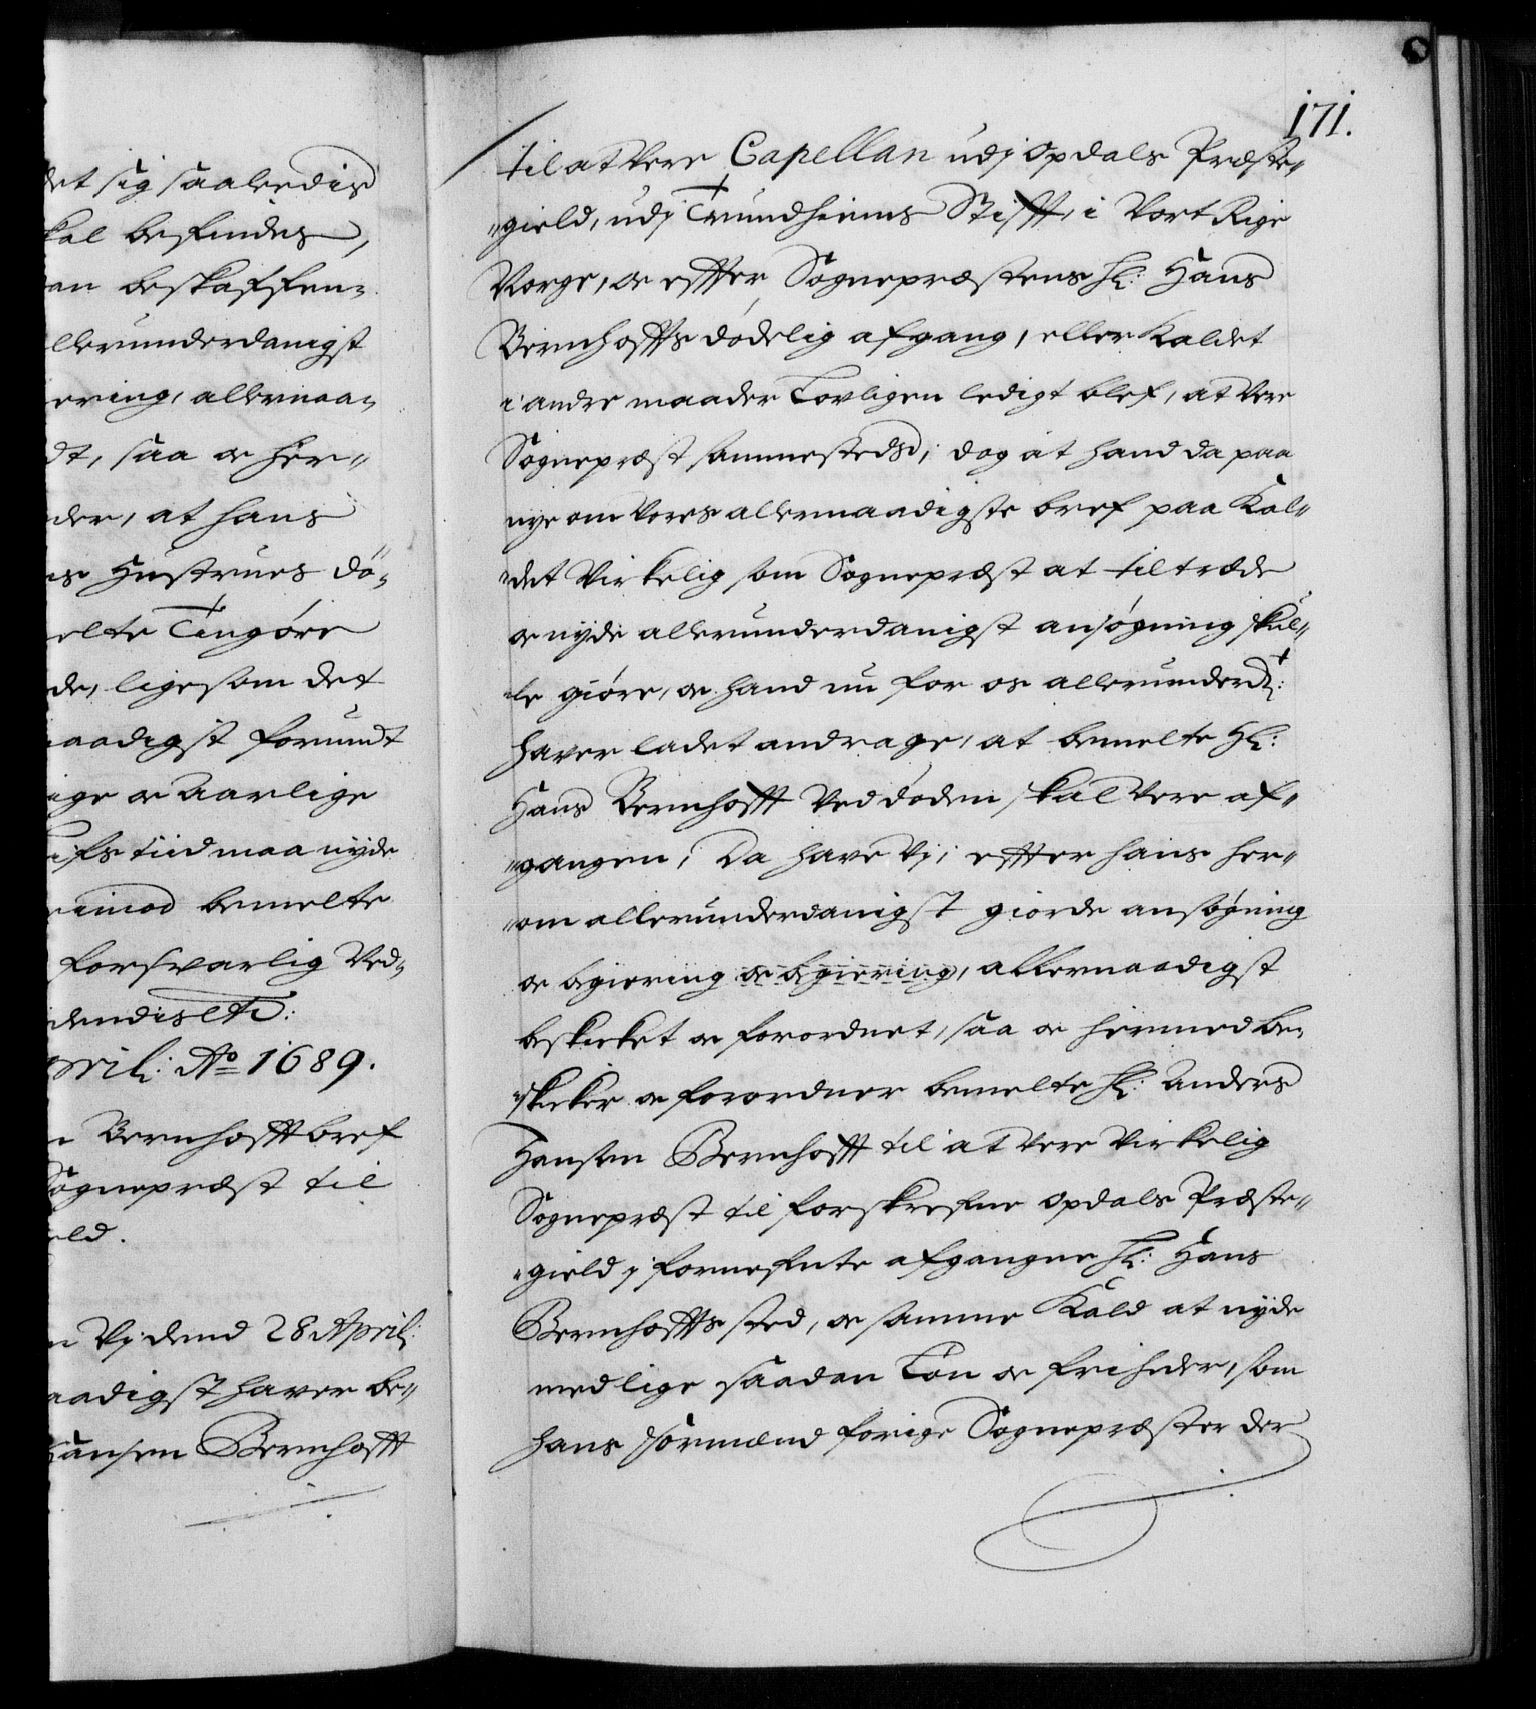 det sig saaledis
kal befindes,
an beskaffen¬
llerunderdanigst
ering, allernaa¬
dt, saa oc her¬
der, at hans
es Hustrues dö¬
elte Tingöre
de, ligesom det
naadigst forundt
ige oc Aarlige
ifs tiid maa nyde
rimod bemelte
forsvarlig Ved¬
dendis etc:
pril: Ao 1689.
n Bernhofft bref
Sognepræst til
eld.
n Vj dend 28 April:
aadigst haver be¬
Hansen Bernhofft
171.
til at vere Capellan udj Opdals Præste¬
gield, udj Trundhiems Stifft, i Vort Rige
Norge, oc effter Sognepræstens Hr: Hans
Bernhoffts dödelig afgang, eller Kaldet
i andre maader Lovligen ledigt blef, at vere
Sognepræst sammesteds, dog at hand da paa
nye om Vores allernaadigste bref paa Kal¬
det Virkelig som Sognepræst at tiltræde
oc nyde allerunderdanigst ansøgning skul¬
le giøre, oc hand nu for os allerunderdt:
haver ladet andrage, at bemelte Hr:
Hans Bernhofft Ved döden skal vere af¬
gangen, Da have Vj, effter hans her¬
om allerunderdanigst giorde ansøgning
oc begiering oc begiering, allernaadigst
beskicket oc forordnet, saa oc hermed be¬
skicker oc forordner bemelte Hr: Anders
Hansen Bernhofft til at vere Virkelig
Sognepræst til forskrefne Opdals Præste¬
gield j fornefnte afgangne Hr: Hans
Bernhoffts sted, oc samme Kald at nyde
med lige saadan Lön oc friheder, som
hans formænd forige Sognepræster der